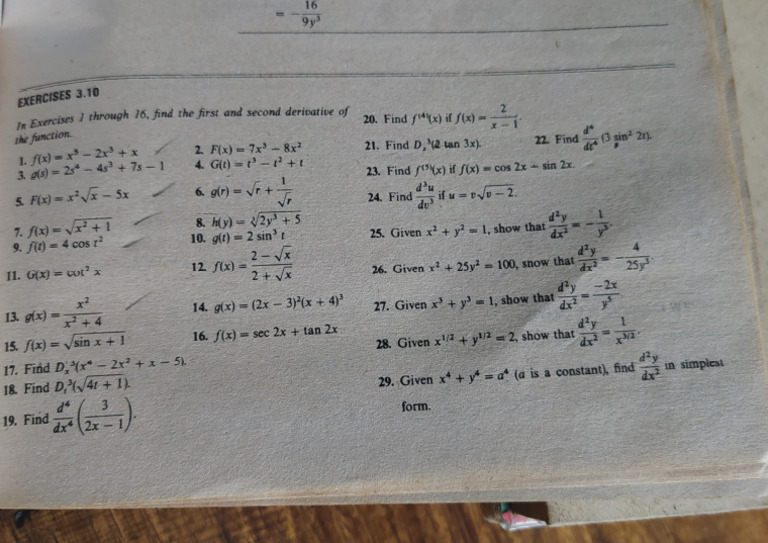 = - 16/9y³
EXERCISES 3.10
In Exercises 1 through 16, find the first and second derivative of
the function.
1. f(x) = x⁵ - 2x³ + x
2. F(x) = 7x³ - 8x²
3. g(s) = 2s⁴ - 4s³ + 7s - 1
4. G(t) = t³ - t² + t
5. F(x) = x²√x - 5x
6. g(r) = √r + 1/√r
7. f(x) = √(x² + 1)
8. h(y) = ∛(2y³ + 5)
9. f(t) = 4 cos t²
10. g(t) = 2 sin³ t
11. G(x) = cot² x
12. f(x) = (2 - √x)/(2 + √x)
13. g(x) = x²/(x² + 4)
14. g(x) = (2x - 3)²(x + 4)³
15. f(x) = √(sin x + 1)
16. f(x) = sec 2x + tan 2x
17. Find Dₓ³(x⁴ - 2x² + x - 5).
18. Find Dₜ³(√(4t + 1)).
19. Find d⁴/dx⁴ (3/(2x - 1)).
20. Find f⁽⁴⁾(x) if f(x) = 2/(x - 1).
21. Find Dₓ³(2 tan 3x).
22. Find d⁴/dt⁴ (3 sin² 2t).
23. Find f⁽⁵⁾(x) if f(x) = cos 2x - sin 2x.
24. Find d³u/dv³ if u = v√(v - 2).
25. Given x² + y² = 1, show that d²y/dx² = - 1/y³.
26. Given x² + 25y² = 100, show that d²y/dx² = - 4/25y³.
27. Given x³ + y³ = 1, show that d²y/dx² = -2x/y⁵.
28. Given x^(1/2) + y^(1/2) = 2, show that d²y/dx² = 1/x^(3/2).
29. Given x⁴ + y⁴ = a⁴ (a is a constant), find d²y/dx² in simplest
form.